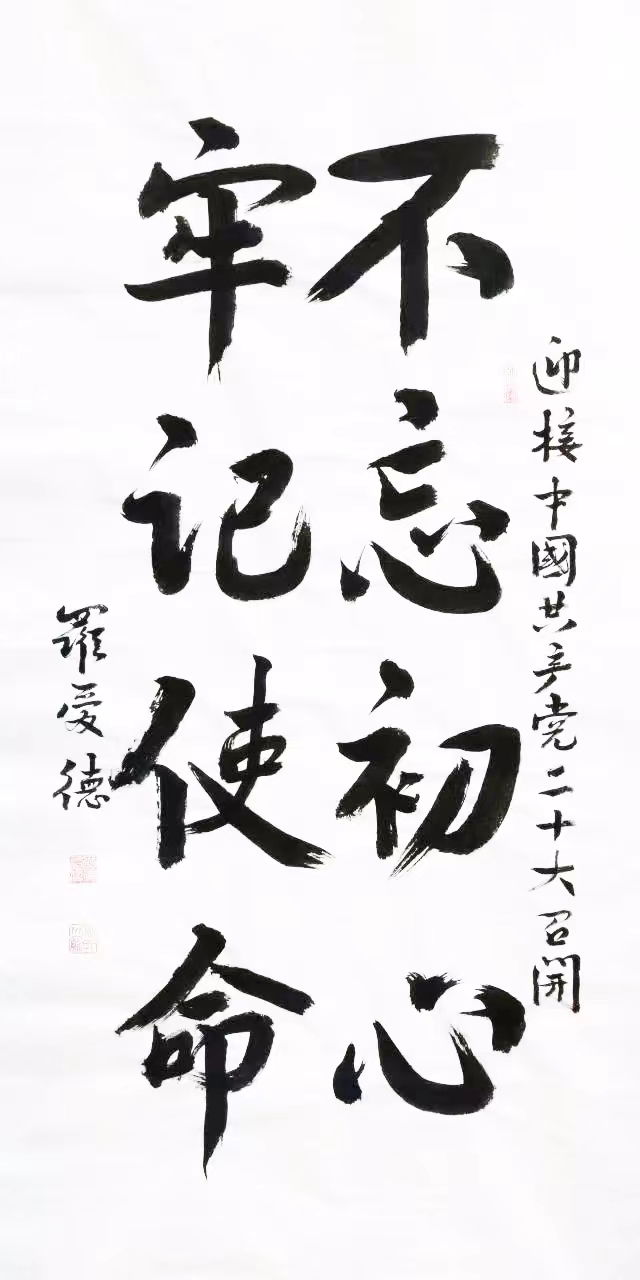 迎接中國共产党二十大召開
不忘初心
牢记使命
羅爱德